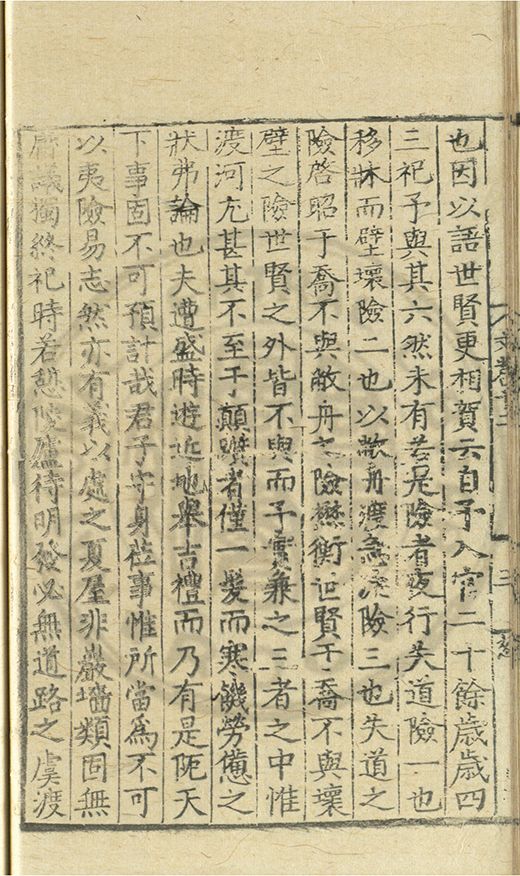 也因以語世賢更相賀云自予入官二十餘歲歲四
三祀予與其六然未有若是險者夜行失道險一也
移牀而壁壞險二也以敝舟渡急流險三也失道之
險啓昭于喬不與敝舟之險懋衡世賢于喬不與壞
壁之險世賢之外皆不與而予實兼之三者之中惟
渡河尤甚其不至于顛躓者僅一髮而寒饑勞憊之
狀弗論也夫遭盛時遊近地舉吉禮而乃有是阨天
下事固不可預計哉君子守身蒞事惟所當為不可
以夷險易志然亦有義以處之夏屋非巖墻類固無
議獨終祀時若憩陵廬待明發必無道路之虞渡
三